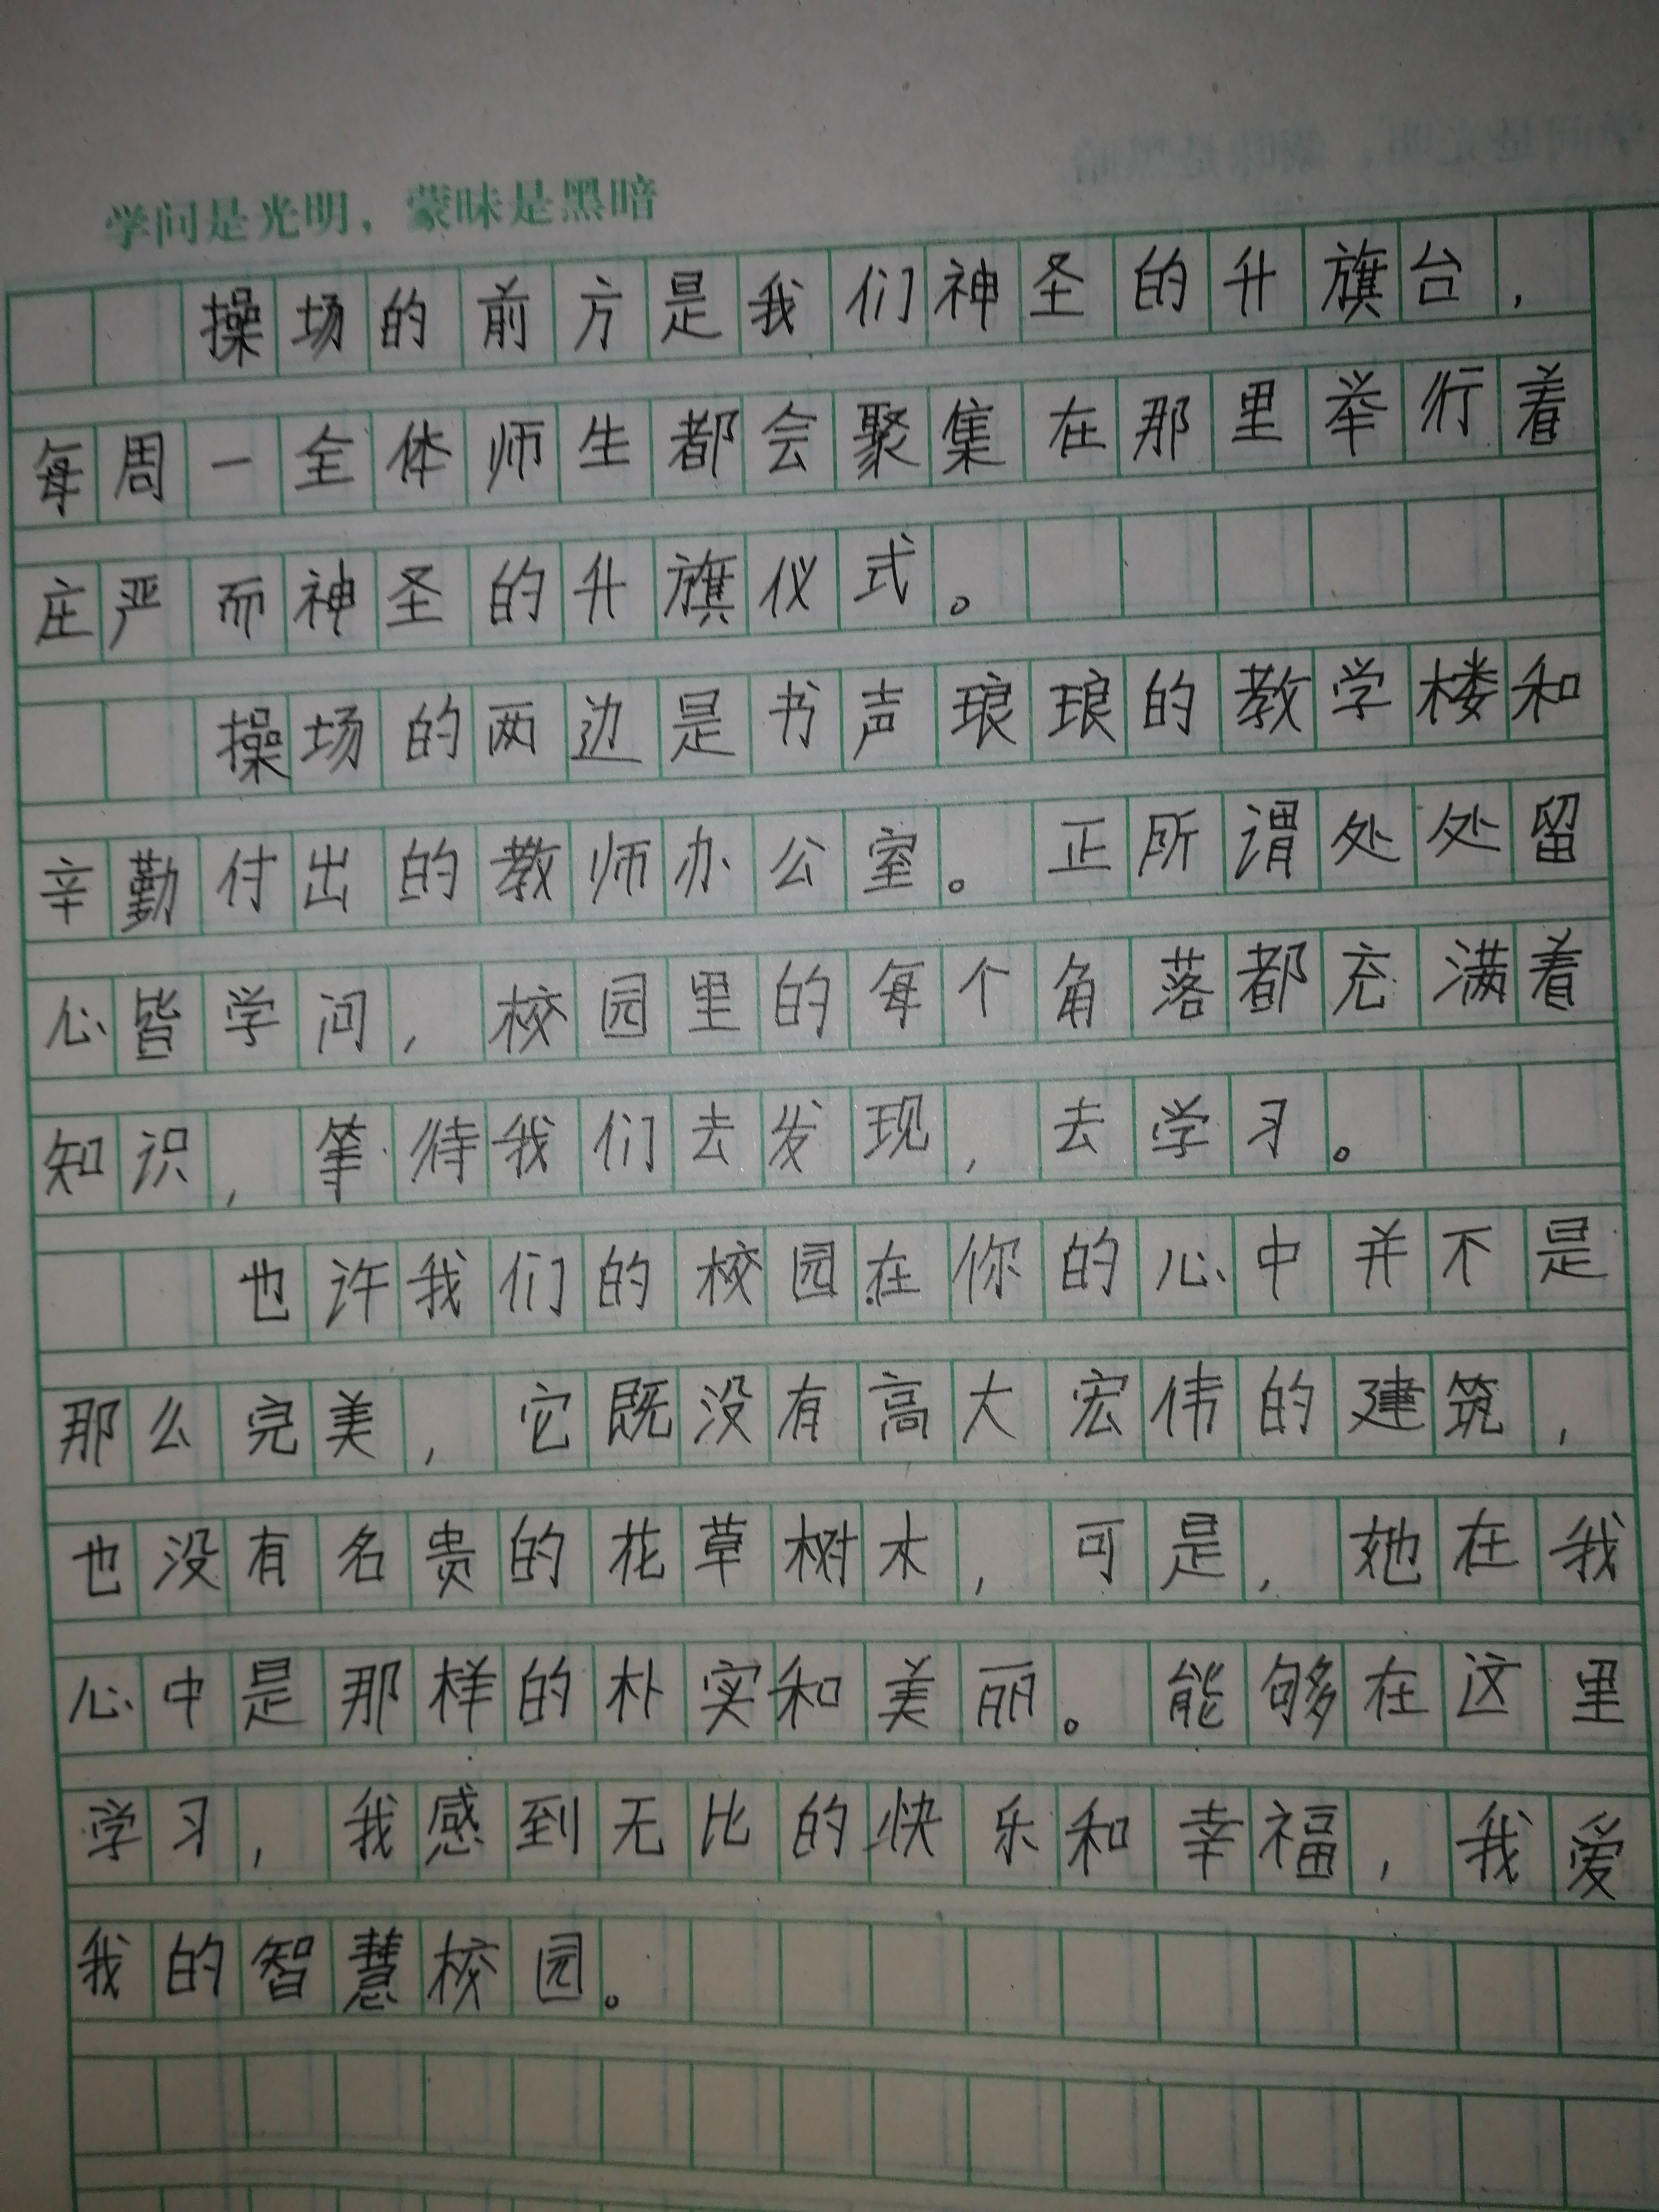 学问是光明，蒙昧是黑暗
操场的前方是我们神圣的升旗台，
每周一全体师生都会聚集在那里举行着
庄严而神圣的升旗仪式。
操场的两边是书声琅琅的教学楼和
辛勤付出的教师办公室。正所谓处处留
心皆学问，校园里的每个角落都充满着
知识，等待我们去发现，去学习。
也许我们的校园在你的心中并不是
那么完美，它既没有高大宏伟的建筑，
也没有名贵的花草树木，可是，她在我
心中是那样的朴实和美丽。能够在这里
学习，我感到无比的快乐和幸福，我爱
我的智慧校园。